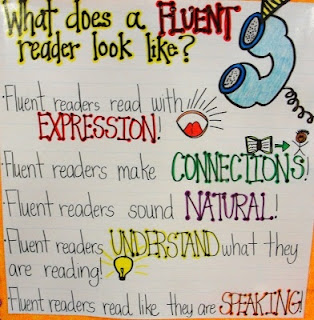 What does a FLUENT
reader look like?
·Fluent readers read with
EXPRESSION!
·Fluent readers make CONNECTIONS!
·Fluent readers sound NATURAL!
·Fluent readers UNDERSTAND what they
are reading!
·Fluent readers read like they are SPEAKING!